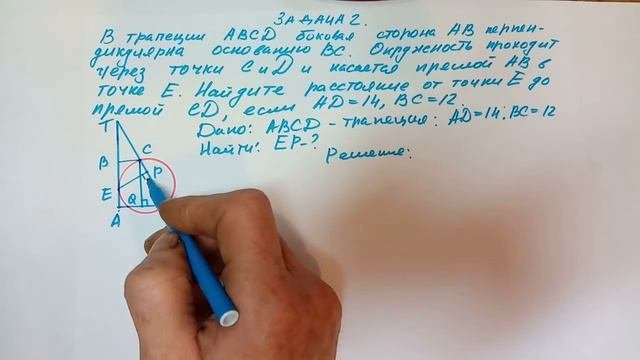 ЗАДАЧА 2.
В трапеции ABCD боковая сторона AB перпен-
дикулярна основанию BC. Окружность проходит
через точки C и D и касается прямой AB в
точке E. Найдите расстояние от точки E до
прямой CD, если AD=14, BC=12.
Дано: ABCD-трапеция: AD=14; BC=12
Найти: EP-?
Решение:
T
B C
P
E
Q
A